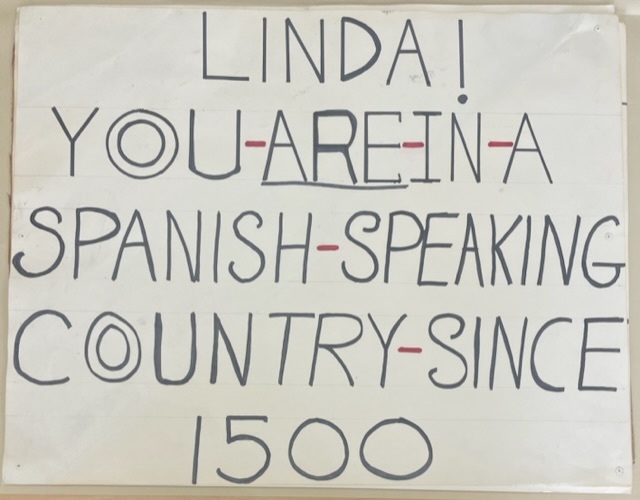 LINDA!
YOU-ARE-IN-A
SPANISH-SPEAKING
COUNTRY-SINCE
1500